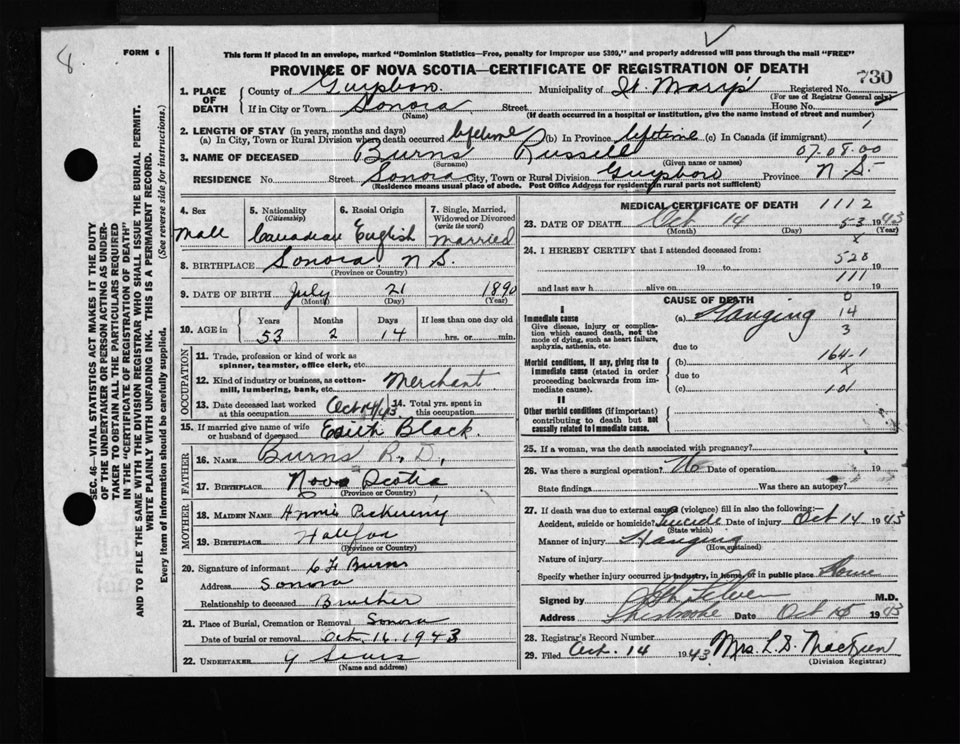 8
FORM 6
This form if placed in an envelope, marked "Dominion Statistics—Free, penalty for improper use $300," and properly addressed will pass through the mail "FREE"
PROVINCE OF NOVA SCOTIA—CERTIFICATE OF REGISTRATION OF DEATH
730
SEC. 46—VITAL STATISTICS ACT MAKES IT THE DUTY
OF THE UNDERTAKER OR PERSON ACTING AS UNDER-
TAKER TO OBTAIN ALL THE PARTICULARS REQUIRED
IN THE "CERTIFICATE OF REGISTRATION OF DEATH"
AND TO FILE THE SAME WITH THE DIVISION REGISTRAR WHO SHALL ISSUE THE BURIAL PERMIT.
WRITE PLAINLY WITH UNFADING INK. THIS IS A PERMANENT RECORD.
Every item of information should be carefully supplied. (See reverse side for instructions.)
1. PLACE OF DEATH
County of Guysboro Municipality of St. Mary's Registered No.
(For use of Registrar General only)
If in City or Town Sonora Street House No.
(Name) (If death occurred in a hospital or institution, give the name instead of street and number)
2. LENGTH OF STAY (in years, months and days)
(a) In City, Town or Rural Division where death occurred lifetime (b) In Province lifetime (c) In Canada (if immigrant)
3. NAME OF DECEASED Burns Russell 07-08-00
(Surname) (Given name or names)
RESIDENCE No. Street Sonora City, Town or Rural Division Guysboro Province N S.
(Residence means usual place of abode. Post Office Address for residents in rural parts not sufficient)
4. Sex Male
5. Nationality (Citizenship) Canadian
6. Racial Origin English
7. Single, Married, Widowed or Divorced (write the word) Married
8. BIRTHPLACE Sonora N S.
(Province or Country)
9. DATE OF BIRTH July 21 1890
(Month) (Day) (Year)
10. AGE in Years Months Days If less than one day old
53 2 14 hrs. or min.
OCCUPATION
11. Trade, profession or kind of work as spinner, teamster, office clerk, etc.
12. Kind of industry or business, as cotton-mill, lumbering, bank, etc. Merchant
13. Date deceased last worked at this occupation Oct 14/43
14. Total yrs. spent in this occupation
15. If married give name of wife or husband of deceased Edith Black.
FATHER
16. NAME Burns R. D.
17. BIRTHPLACE Nova Scotia
(Province or Country)
MOTHER
18. MAIDEN NAME Annie
19. BIRTHPLACE Halifax
(Province or Country)
20. Signature of informant Burns
Address Sonora
Relationship to deceased Brother
21. Place of Burial, Cremation or Removal Sonora
Date of burial or removal Oct. 16. 1943
22. UNDERTAKER
(Name and address)
MEDICAL CERTIFICATE OF DEATH 1112
23. DATE OF DEATH Oct 14 53 1943
(Month) (Day) (Year)
x
24. I HEREBY CERTIFY that I attended deceased from:
528
19 to 19
111
and last saw h alive on 19
CAUSE OF DEATH 0
I
Immediate cause (a) Hanging 14
Give disease, injury or complication which caused death, not the mode of dying, such as heart failure, asphyxia, asthenia, etc. 3
due to
Morbid conditions, if any, giving rise to immediate cause (stated in order proceeding backwards from immediate cause). (b) 164-1
due to x
(c) 101
II
Other morbid conditions (if important) contributing to death but not causally related to immediate cause.
25. If a woman, was the death associated with pregnancy?
26. Was there a surgical operation? No Date of operation 19
State findings Was there an autopsy?
27. If death was due to external causes (violence) fill in also the following:
Accident, suicide or homicide? Suicide Date of injury Oct 14 1943
(State which)
Manner of injury Hanging
(How sustained)
Nature of injury
Specify whether injury occurred in industry, in home, or in public place Home
Signed by M.D.
Address Sherbrooke Date Oct 15 1943
28. Registrar's Record Number
29. Filed Oct. 14 1943 Mrs. L. S.
(Division Registrar)